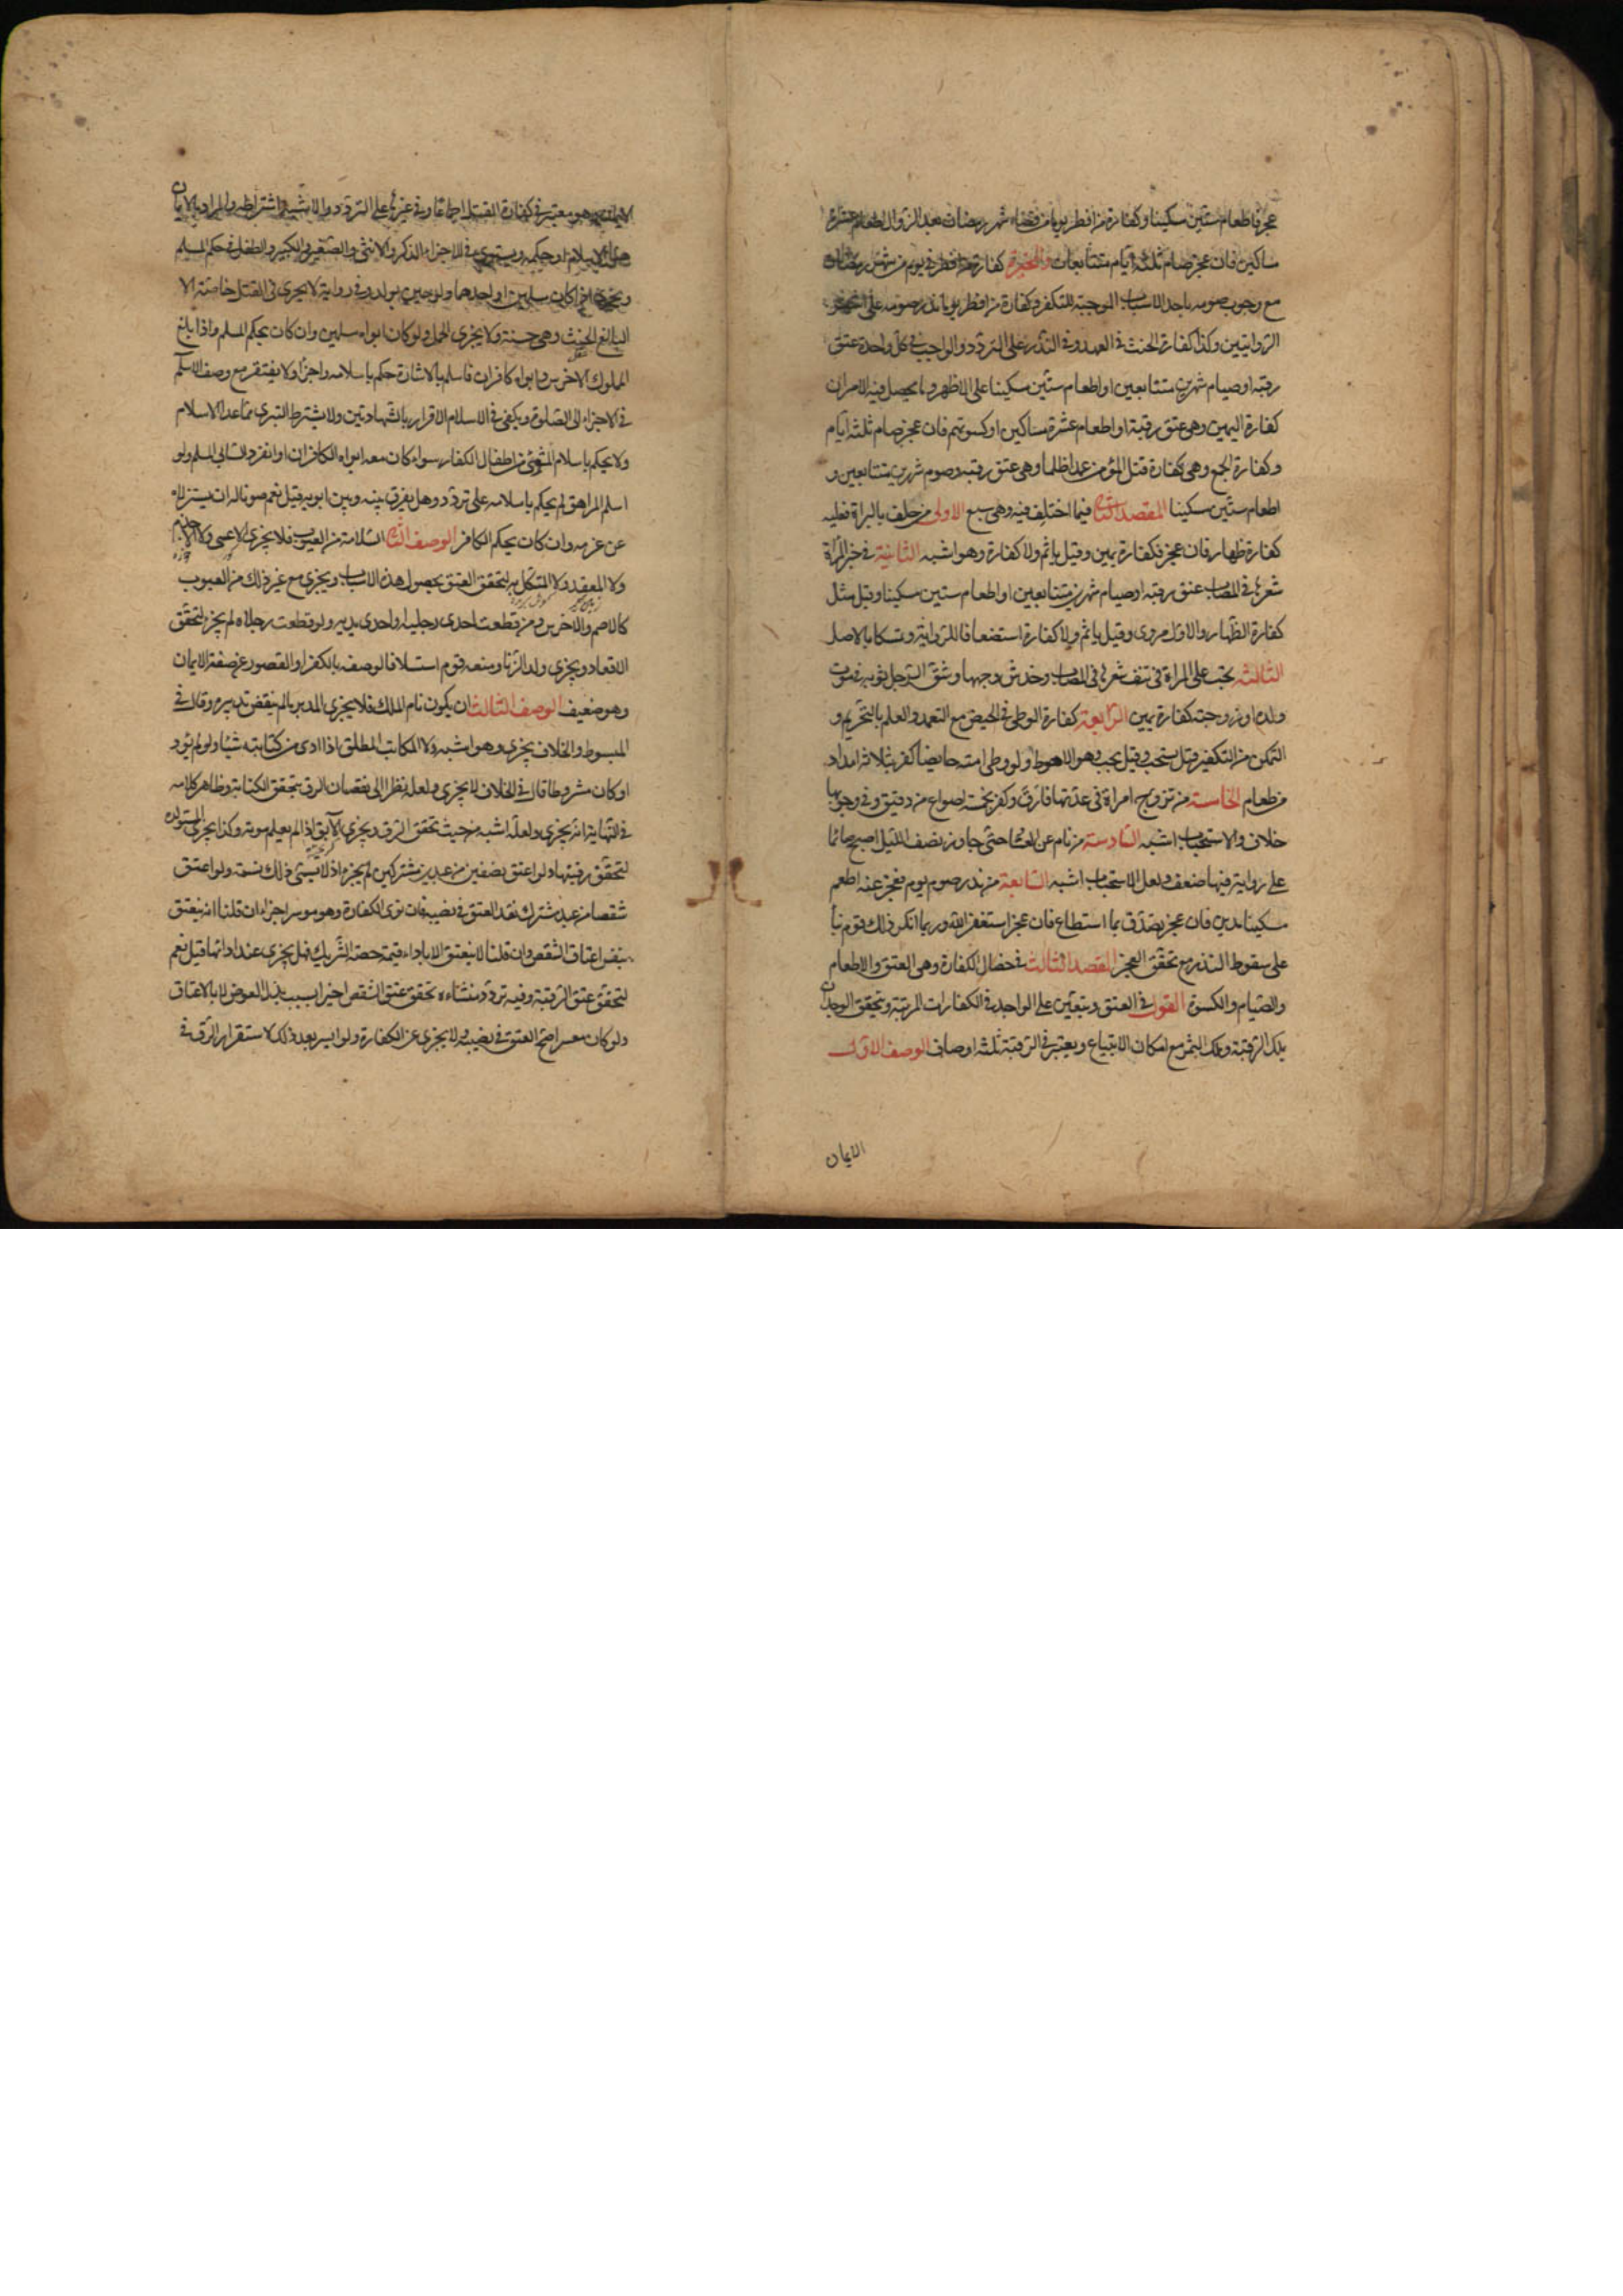 عجز فاطعام ستين مسكينا وكفارة من افطر يوما من قضاء شهر رمضان بعد الزوال اطعام عشرة
مساكين فان عجز صام ثلثة ايام متتابعات والمخيرة كفارة من افطر في يوم من شهر رمضان
مع وجوب صومه باحد الاسباب الموجبة للتكفير وكفارة من افطر يوما نذر صومه على اشهر
الروايتين وكذا كفارة الحنث في العهد وفي النذر على التردد والواجب في كل واحدة عتق
رقبة او صيام شهرين متتابعين او اطعام ستين مسكينا على الاظهر وما يحصل فيه الامران
كفارة اليمين وهي عتق رقبة او اطعام عشرة مساكين او كسوتهم فان عجز صام ثلثة ايام
وكفارة الجمع وهي كفارة قتل المؤمن عمدا ظلما وهي عتق رقبة وصوم شهرين متتابعين و
اطعام ستين مسكينا المقصد الثاني فيما اختلف فيه وهي سبع الاولى من حلف بالبراة فعليه
كفارة ظهار فان عجز فكفارة يمين وقيل ياثم ولا كفارة وهو اشبه الثانية في جز المراة
شعرها في المصاب عتق رقبة او صيام شهرين متتابعين او اطعام ستين مسكينا وقيل مثل
كفارة الظهار والاول مروي وقيل ياثم ولا كفارة استضعافا للرواية وتمسكا بالاصل
الثالثة يجب على المراة في نتف شعرها في المصاب وخدش وجهها وشق الرجل ثوبه في موت
ولده او زوجته كفارة يمين الرابعة كفارة الوطي في الحيض مع التعمد والعلم بالتحريم و
التمكن من التكفير قيل يستحب وقيل يجب وهو الاحوط ولو وطي امته حايضا كفر بثلاثة امداد
من طعام الخامسة من تزوج امراة في عدتها فارق وكفر بخمسة اصواع من دقيق وفي وجوبها
خلاف والاستحباب اشبه السادسة من نام عن العشا حتى جاوز نصف الليل اصبح صائما
على رواية فيها ضعف ولعل الاستحباب اشبه السابعة من نذر صوم يوم فعجز عنه اطعم
مسكينا مدين فان عجز تصدق بما استطاع فان عجز استغفر الله وربما انكر ذلك قوم بنا
على سقوط النذر مع تحقق العجز المقصد الثالث في خصال الكفارة وهي العتق والاطعام
والصيام والكسوة القول في العتق ويتعين على الواجد في الكفارات المرتبة ويتحقق الوجدان
بملك الرقبة وملك الثمن مع امكان الابتياع ويعتبر في الرقبة ثلثة اوصاف الوصف الاول
الايمان
الايمان وهو معتبر في كفارة القتل اجماعا وفي غيرها على التردد والاشبه اشتراطه والمراد بالايمان
هنا الاسلام او حكمه ويستوي في الاجزاء الذكر والانثى والصغير والكبير والطفل في حكم المسلم
ويجزي ان كان ابواه مسلمين او احدهما ولو حين يولد وفي رواية لا يجزي في القتل خاصة الا
البالغ الحنث وهي حسنة ولا يجزي الحمل ولو كان ابواه مسلمين وان كان بحكم المسلم واذا بلغ
المملوك الاخرس وابواه كافران فاسلم بالاشارة حكم باسلامه واجزأ ولا يفتقر مع وصف الاسلام
في الاجزاء الى الصلوة ويكفي في الاسلام الاقرار بالشهادتين ولا يشترط التبري مما عدا الاسلام
ولا يحكم باسلام المسبي من اطفال الكفار سواء كان معه ابواه الكافران او انفرد السابي المسلم ولو
اسلم المراهق لم يحكم باسلامه على تردد وهل يفرق بينه وبين ابويه قيل نعم صونا له ان يستزلاه
عن عزمه وان كان بحكم الكافر الوصف الثاني السلامة من العيوب فلا يجزي الاعمى ولا الاجذم
ولا المقعد ولا المنكل به لتحقق العتق بحصول هذه الاسباب ويجزي مع غير ذلك من العيوب
كالاصم والاخرس ومن قطعت احدى رجليه او احدى يديه ولو قطعت رجلاه لم يجز لتحقق
الاقعاد ويجزي ولد الزنا ومنعه قوم استسلافا لوصفه بالكفر او لقصوره عن صفة الايمان
وهو ضعيف الوصف الثالث ان يكون تام الملك فلا يجزي المدبر ما لم ينقض تدبيره وقال في
المبسوط والخلاف يجزي وهو اشبه ولا المكاتب المطلق اذا ادى من كتابته شيئا ولو لم يؤد
او كان مشروطا قال في الخلاف لا يجزي ولعله نظرا الى نقصان الرق بتحقق الكتابة وظاهر كلامه
في النهاية انه يجزي ولعله اشبه من حيث تحقق الرق ويجزي الآبق اذا لم يعلم موته وكذا يجزي المستولدة
لتحقق رقيتها ولو اعتق نصفين من عبدين مشتركين لم يجز اذ لا يسمى ذلك نسمة ولو اعتق
شقصا من عبد مشترك نفذ العتق في نصيبه فان نوى الكفارة وهو موسر اجزاه ان قلنا انه ينعتق
بنفس اعتاق الشقص وان قلنا لا ينعتق الا باداء قيمة حصة الشريك فهل يجزي عند ادائها قيل نعم
لتحقق عتق الرقبة وفيه تردد منشاءه تحقق عتق الشقص اخيرا بسبب بذل العوض لا بالاعتاق
ولو كان معسرا صح العتق في نصيبه ولا يجزي عن الكفارة ولو ايسر بعد ذلك لاستقرار الرق في